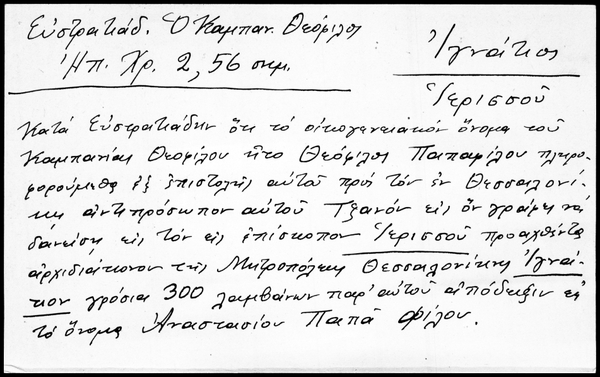 Εὐστρατιάδ. Ὁ Καμπαν. Θεόφιλος
Ἠπ. Χρ. 2, 56 σημ.
Ἰγνάτιος
Ἱερισσοῦ
Κατά Εὐστρατιάδην ὅτι τό οἰκογενειακόν ὄνομα τοῦ
Καμπανίας Θεοφίλου ἦτο Θεόφιλος Παπαφίλου πληρο-
φορούμεθα ἐξ ἐπιστολῆς αὐτοῦ πρός τόν ἐν Θεσσαλονί-
κῃ ἀντιπρόσωπον αὐτοῦ Τζανόν εἰς ὅν γράφει νά
δανείσῃ εἰς τόν εἰς ἐπίσκοπον Ἱερισσοῦ προαχθέντα
ἀρχιδιάκονον τῆς Μητροπόλεως Θεσσαλονίκης Ἰγνά-
τιον γρόσια 300 λαμβάνων παρ' αὐτοῦ ἀπόδειξιν εἰς
τό ὄνομα Ἀναστασίου Παπᾶ Φίλου.